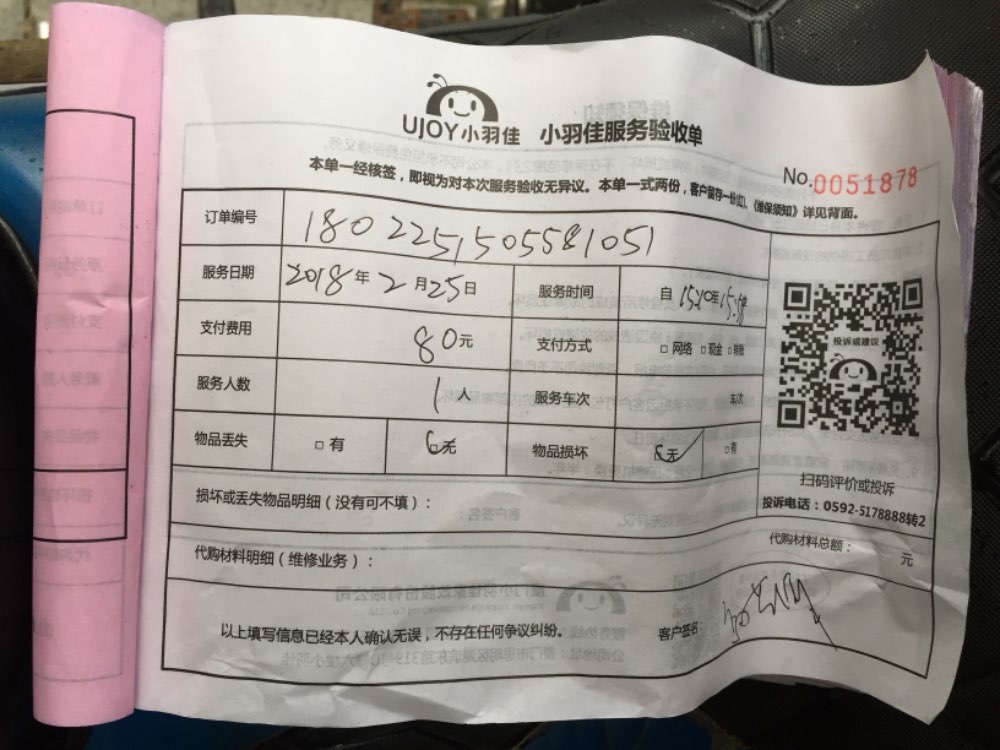 UJOY小羽佳 小羽佳服务验收单
本单一经核签，即视为对本次服务验收无异议。本单一式两份，客户留存一份(红)。《维保须知》详见背面。
No.0051878
订单编号 180225150558 1051
服务日期 2018年2月25日 服务时间 自15:20至15:58
支付费用 80元 支付方式 □网络 □现金 □转账
服务人数 1人 服务车次 车次
物品丢失 □有 □无 物品损坏 □无 □有
投诉或建议
扫码评价或投诉
投诉电话：0592-5178888转2
损坏或丢失物品明细（没有可不填）：
代购材料明细（维修业务）： 代购材料总额： 元
以上填写信息已经本人确认无误，不存在任何争议纠纷。 客户签名：